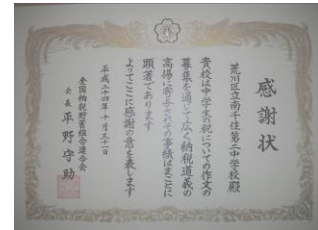 感謝状
荒川区立南千住第二中学校殿
貴校は中学生の税についての作文の
募集を通じて広く納税道義の
高揚に寄与されその事績はまことに
顕著であります
よってここに感謝の意を表します
平成二十四年十月三十一日
全国納税貯蓄組合連合会
会長 平野守助